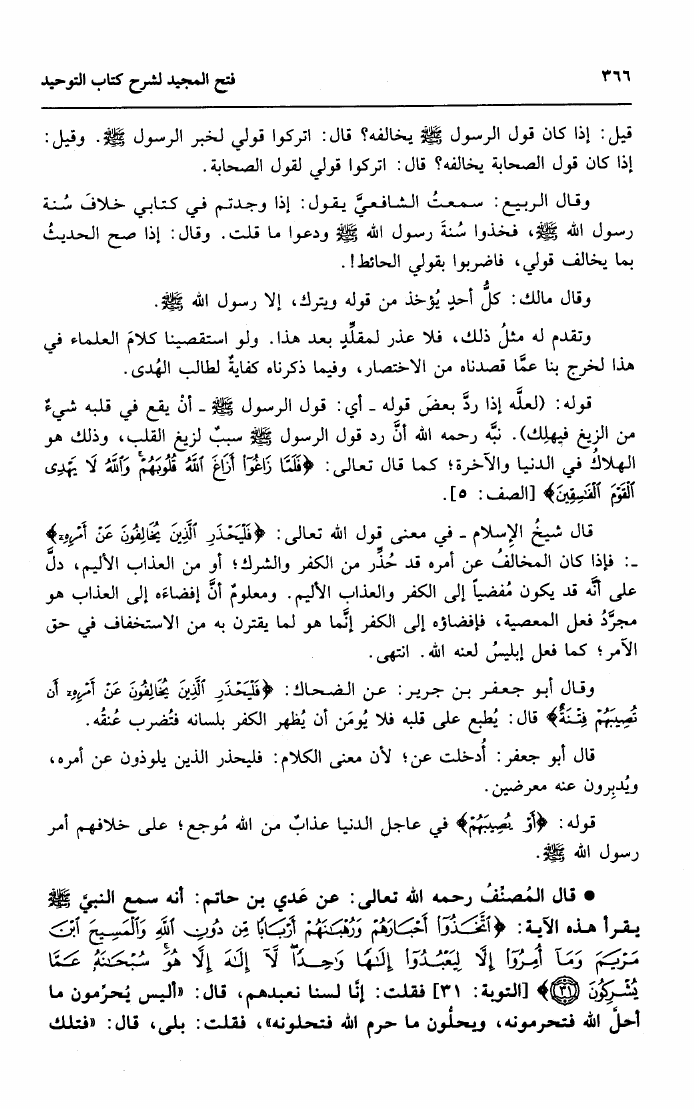 ٣٦٦ فتح المجيد لشرح كتاب التوحيد
قيل: إذا كان قول الرسول ﷺ يخالفه؟ قال: اتركوا قولي لخبر الرسول ﷺ. وقيل:
إذا كان قول الصحابة يخالفه؟ قال: اتركوا قولي لقول الصحابة.
وقال الربيع: سمعتُ الشافعيَّ يقول: إذا وجدتم في كتابي خلافَ سُنة
رسول الله ﷺ، فخذوا سُنةَ رسول الله ﷺ ودعوا ما قلت. وقال: إذا صح الحديثُ
بما يخالف قولي، فاضربوا بقولي الحائط!.
وقال مالك: كلُّ أحدٍ يُؤخذ من قوله ويترك، إلا رسول الله ﷺ.
وتقدم له مثلُ ذلك، فلا عذر لمقلِّدٍ بعد هذا. ولو استقصينا كلامَ العلماء في
هذا لخرج بنا عمَّا قصدناه من الاختصار، وفيما ذكرناه كفايةٌ لطالب الهُدى.
قوله: (لعلَّه إذا ردَّ بعضَ قوله ـ أي: قول الرسول ﷺ ـ أنْ يقع في قلبه شيءٌ
من الزيغ فيهلِك). نبَّه رحمه الله أنَّ رد قول الرسول ﷺ سببٌ لزيغ القلب، وذلك هو
الهلاكُ في الدنيا والآخرة؛ كما قال تعالى: ﴿فَلَمَّا زَاغُوٓا۟ أَزَاغَ ٱللَّهُ قُلُوبَهُمْ ۚ وَٱللَّهُ لَا يَهْدِى
ٱلْقَوْمَ ٱلْفَـٰسِقِينَ﴾ [الصف: ٥].
قال شيخُ الإسلام ـ في معنى قول الله تعالى: ﴿فَلْيَحْذَرِ ٱلَّذِينَ يُخَالِفُونَ عَنْ أَمْرِهِۦٓ﴾
ـ: فإذا كان المخالفُ عن أمره قد حُذِّر من الكفر والشرك؛ أو من العذاب الأليم، دلَّ
على أنَّه قد يكون مُفضياً إلى الكفر والعذاب الأليم. ومعلومٌ أنَّ إفضاءَه إلى العذاب هو
مجرَّدُ فعل المعصية، فإفضاؤه إلى الكفر إنَّما هو لما يقترن به من الاستخفاف في حق
الآمر؛ كما فعل إبليسُ لعنه الله. انتهى.
وقال أبو جعفر بن جرير: عن الضحاك: ﴿فَلْيَحْذَرِ ٱلَّذِينَ يُخَالِفُونَ عَنْ أَمْرِهِۦٓ أَن
تُصِيبَهُمْ فِتْنَةٌ﴾ قال: يُطبع على قلبه فلا يُومَن أن يُظهر الكفر بلسانه فتُضرب عُنقُه.
قال أبو جعفر: أُدخلت عن؛ لأن معنى الكلام: فليحذر الذين يلوذون عن أمره،
ويُدبِرون عنه معرضين.
قوله: ﴿أَوْ يُصِيبَهُمْ﴾ في عاجل الدنيا عذابٌ من الله مُوجع؛ على خلافهم أمر
رسول الله ﷺ.
• قال المُصنِّفُ رحمه الله تعالى: عن عَدي بن حاتم: أنه سمع النبيَّ ﷺ
يقرأ هذه الآية: ﴿ٱتَّخَذُوٓا۟ أَحْبَارَهُمْ وَرُهْبَـٰنَهُمْ أَرْبَابًا مِّن دُونِ ٱللَّهِ وَٱلْمَسِيحَ ٱبْنَ
مَرْيَمَ وَمَآ أُمِرُوٓا۟ إِلَّا لِيَعْبُدُوٓا۟ إِلَـٰهًا وَٰحِدًا ۖ لَّآ إِلَـٰهَ إِلَّا هُوَ ۚ سُبْحَـٰنَهُۥ عَمَّا
يُشْرِكُونَ ٣١﴾ [التوبة: ٣١] فقلت: إنَّا لسنا نعبدهم، قال: «أليس يُحرِّمون ما
أحلَّ الله فتحرمونه، ويحلُّون ما حرم الله فتحلونه»، فقلت: بلى، قال: «فتلك